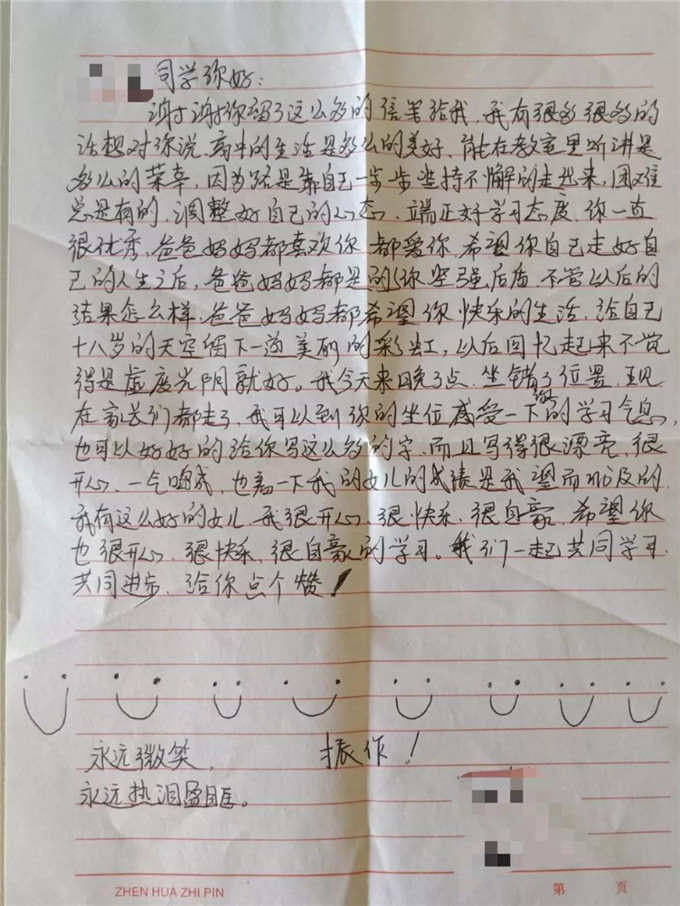 同学你好:
谢谢谢谢你写了这么多的信笺给我,我有很多很多的
话想对你说,高中的生活是多么的美好,能在教室里听讲是
多么的荣幸,因为路是靠自己一步步坚持不懈的走出来,困难
总是有的,调整好自己的心态,端正好学习态度,你一直
很优秀,爸爸妈妈都喜欢你都爱你,希望你自己走好自
己的人生之后,爸爸妈妈都是的你坚强后盾,不管以后的
结果怎么样,爸爸妈妈都希望你快乐的生活,给自己
十八岁的天空留下一道美丽的彩虹,以后回忆起来不觉
得是虚度光阴就好。我今天来晚了点,坐错了位置,现
在家长们都走了,我可以到你的坐位感受一下你的学习气息,
也可以好好的给你写这么多的字,而且写得很漂亮,很
开心,一气呵成,也看一下我的女儿的成绩是我望而不及的
我有这么好的女儿,我很开心,很快乐,很自豪,希望你
也很开心,很快乐,很自豪的学习。我们一起共同学习
共同进步,给你点个赞!
永远微笑, 振作!
永远热泪盈眶。
ZHEN HUA ZHI PIN 第 页